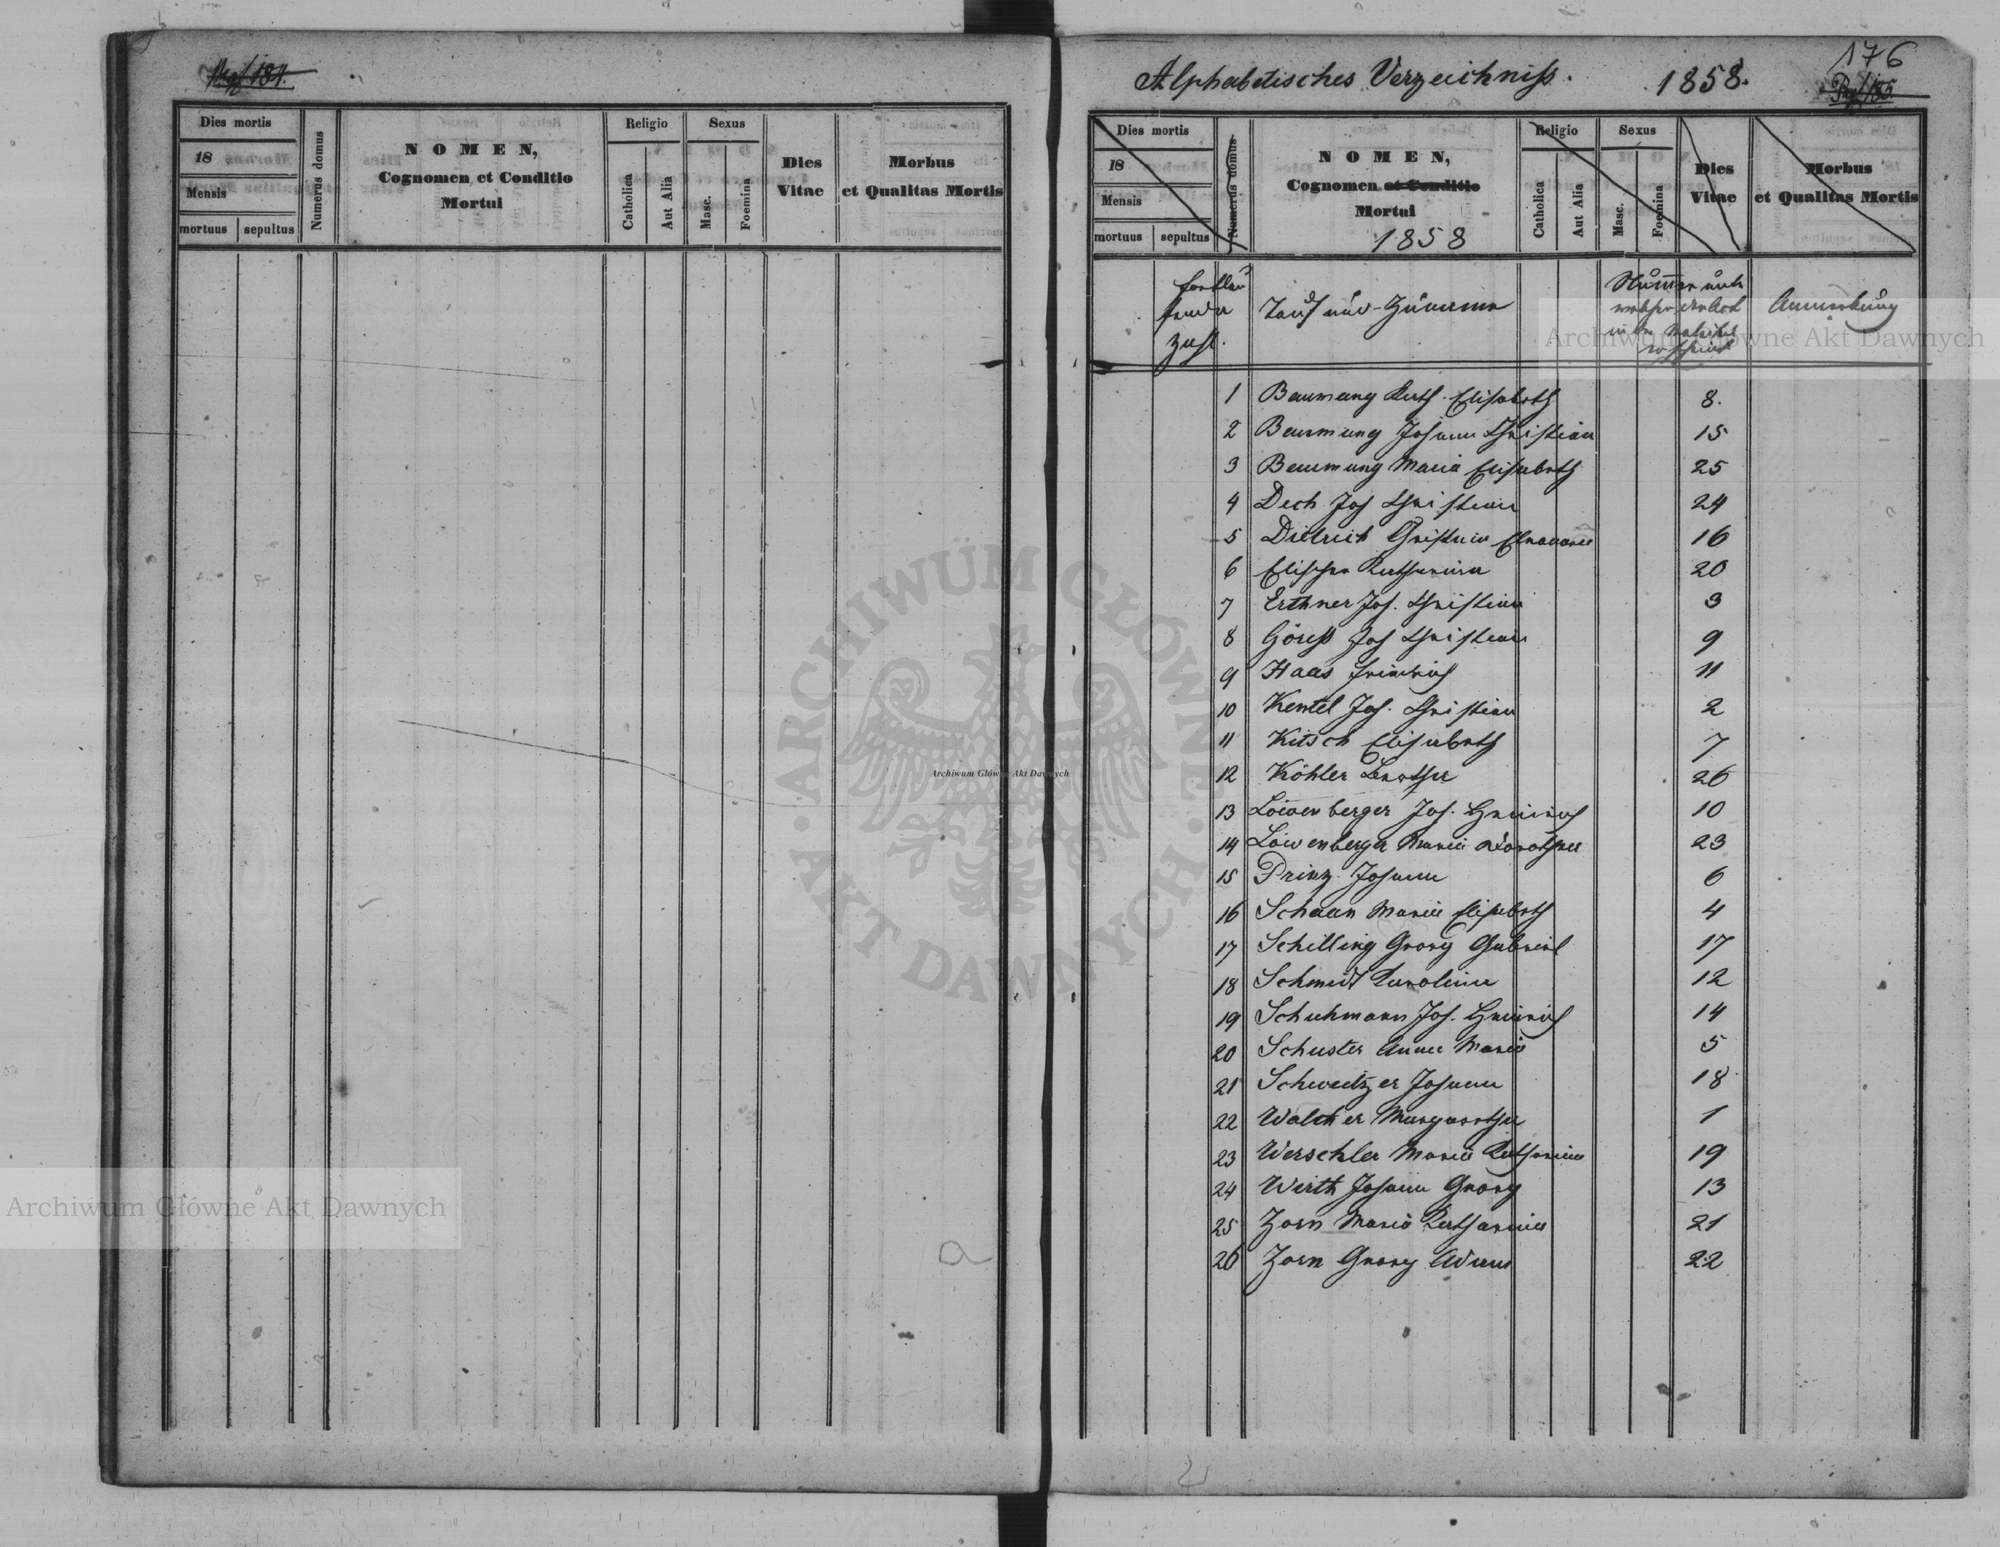 Dies mortis
18
Mensis
mortuus sepultus
Numerus domus
NOMEN,
Cognomen et Conditio
Mortui
Religio
Catholica
Aut Alia
Sexus
Masc.
Foemina
Dies
Vitae
Morbus
et Qualitas Mortis
Alphabetisches Verzeichniss. 1858.
176
Pag. 185.
Dies mortis
18
Mensis
mortuus sepultus
Numerus domus
NOMEN,
Cognomen et Conditio
Mortui
1858
Religio
Catholica
Aut Alia
Sexus
Masc.
Foemina
Dies
Vitae
Morbus
et Qualitas Mortis
fortlau
fende
Zahl.
Tauf und Zuname
Nummer unter
welcher der Act
in der Matrikel
erscheint
Anmerkung
1 Baumung Kath. Elisabeth 8.
2 Baumung Johann Christian 15
3 Baumung Maria Elisabeth 25
4 Dech Joh Christian 24
5 Dietrich Christina Eleonora 16
6 Elischer Katharina 20
7 Erthner Joh. Christian 3
8 Göress Joh Christian 9
9 Haas Heinrich 11
10 Kentel Joh. Christian 2
11 Kitsch Elisabeth 7
12 Köhler 26
13 Löwenberger Joh. Heinrich 10
14 Löwenberger Maria Dorothea 23
15 Prinz Johann 6
16 Schaan Maria Elisabeth 4
17 Schilling Georg Gabriel 17
18 Schmidt Karolina 12
19 Schuhmann Joh. Heinrich 14
20 Schuster Anna Maria 5
21 Schweitzer Johann 18
22 Walther Margaretha 1
23 Werschler Maria Katharina 19
24 Werth Johann Georg 13
25 Zorn Maria Katharina 21
26 Zorn Georg Adam 22
ARCHIWUM GŁÓWNE AKT DAWNYCH
Archiwum Główne Akt Dawnych
Archiwum Główne Akt Dawnych
Archiwum Główne Akt Dawnych